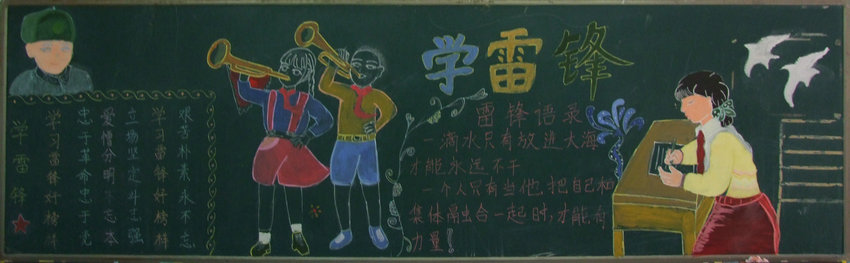 学雷锋
学习雷锋好榜样
忠于革命忠于党
爱憎分明不忘本
立场坚定斗志强
学习雷锋好榜样
艰苦朴素永不忘
学雷锋
雷锋语录
一滴水只有放进大海
才能永远不干
一个人只有当他把自己和
集体融合一起时,才能有
力量!